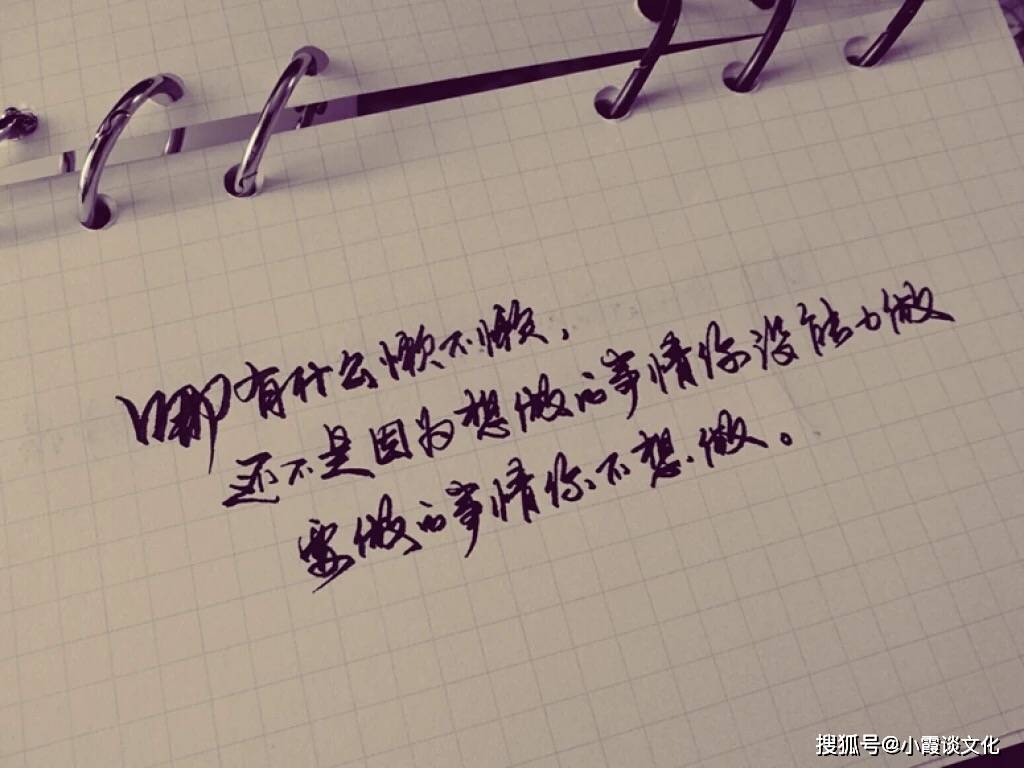 哪有什么懒不懒，
还不是因为想做的事情你没能力做
要做的事情你不想做。
搜狐号@小霞谈文化